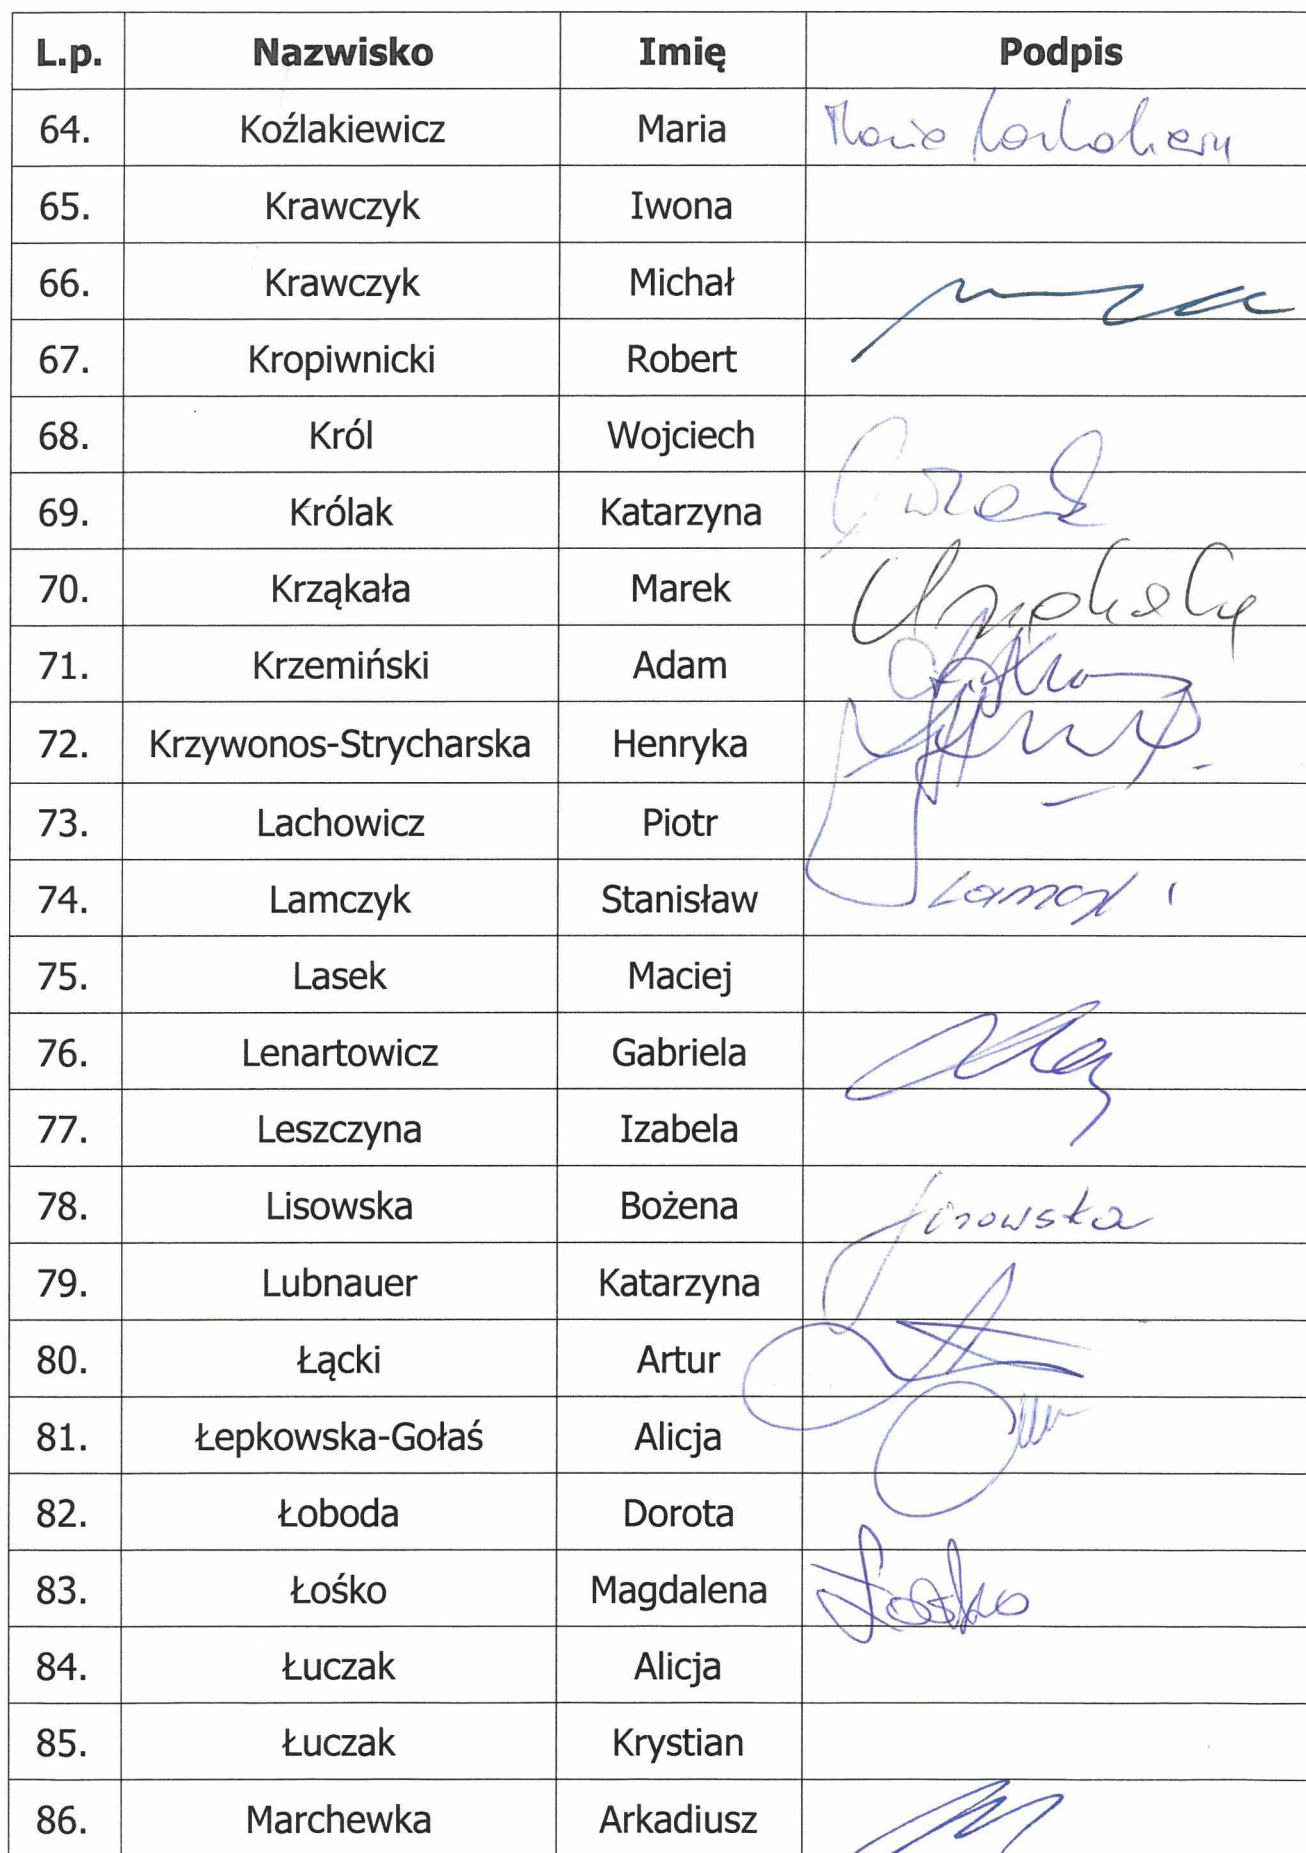 L.p. Nazwisko Imię Podpis
64. Koźlakiewicz Maria Maria
65. Krawczyk Iwona
66. Krawczyk Michał
67. Kropiwnicki Robert
68. Król Wojciech
69. Królak Katarzyna
70. Krząkała Marek
71. Krzemiński Adam
72. Krzywonos-Strycharska Henryka
73. Lachowicz Piotr
74. Lamczyk Stanisław
75. Lasek Maciej
76. Lenartowicz Gabriela
77. Leszczyna Izabela
78. Lisowska Bożena Lisowska
79. Lubnauer Katarzyna
80. Łącki Artur
81. Łepkowska-Gołaś Alicja
82. Łoboda Dorota
83. Łośko Magdalena Łośko
84. Łuczak Alicja
85. Łuczak Krystian
86. Marchewka Arkadiusz